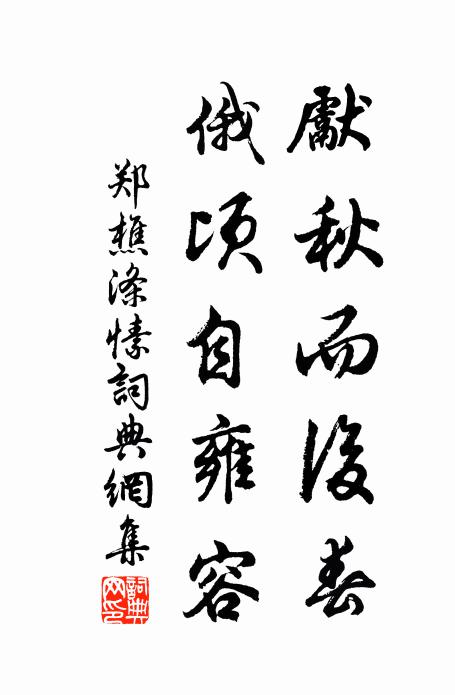 獻秋而後春
俄頃自雍容
郑樵滌愫詞典網集
詞典網印